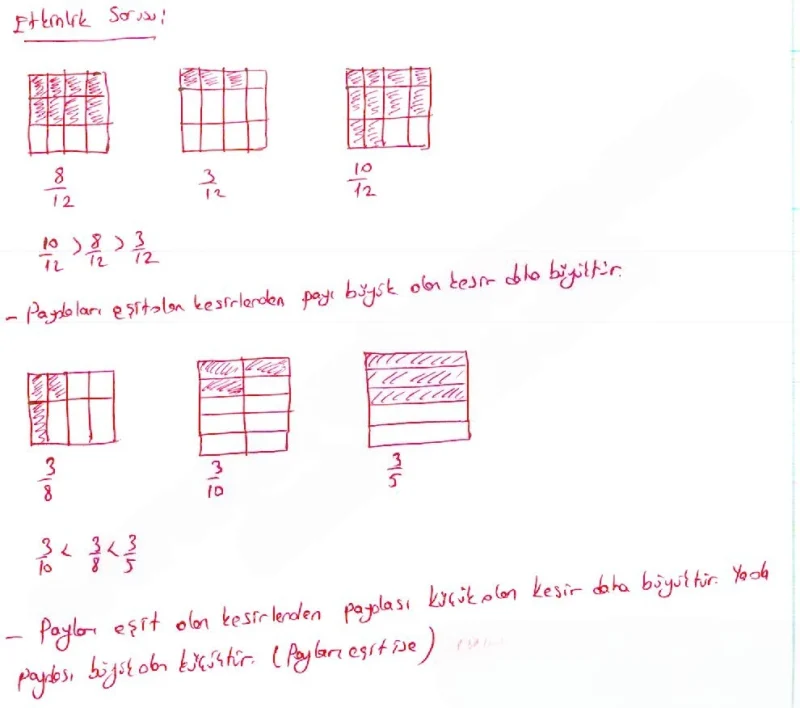 Etkinlik Sorusu:
8/12 3/12 10/12
10/12 > 8/12 > 3/12
- Paydaları eşit olan kesirlerden payı büyük olan kesir daha büyüktür.
3/8 3/10 3/5
3/10 < 3/8 < 3/5
- Payları eşit olan kesirlerden paydası küçük olan kesir daha büyüktür. Yada
paydası büyük olan küçüktür. (Payları eşit ise)